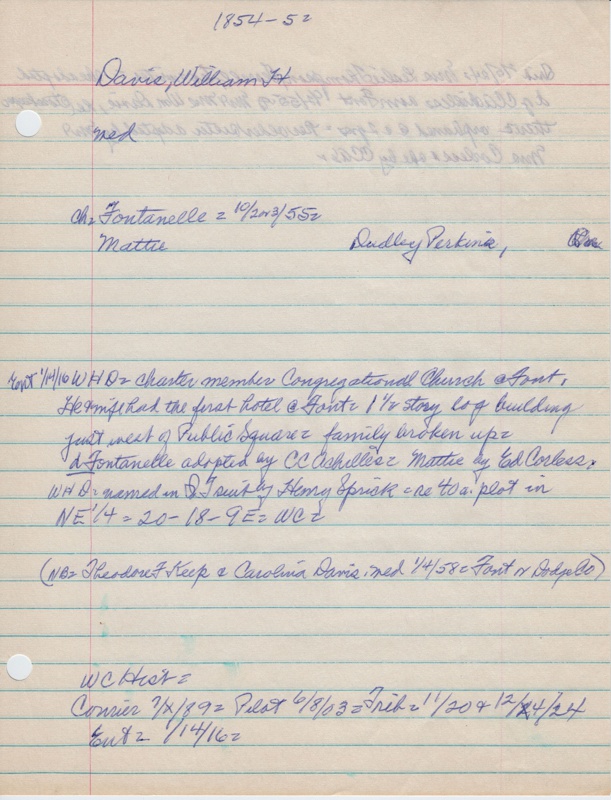 1854-5=
Davis, William H
med
ch= Fontanelle = 10/2or3/55=
Mattie Dudley Perkins,
Ent 1/14/16 W H D= charter member Congregational Church @ Font.
He & wife had the first hotel @ Font= 1 1/2 story log building
just west of Public Square= family broken up=
d Fontanelle adopted by CC Achilles= Mattie by Ed Corless.
WHD= named in Q T suit by Henry Sprick = re 40 a. plot in
NE 1/4 = 20-18-9E= WC=
(NB= Theodore F Keep & Carolina Davis, med 1/4/58= Font in Dodge Co)
WC Hist=
Courier 7/ /89= Pilot 6/8/03= Trib= 11/20 & 12/24/24
Ent= 1/14/16=